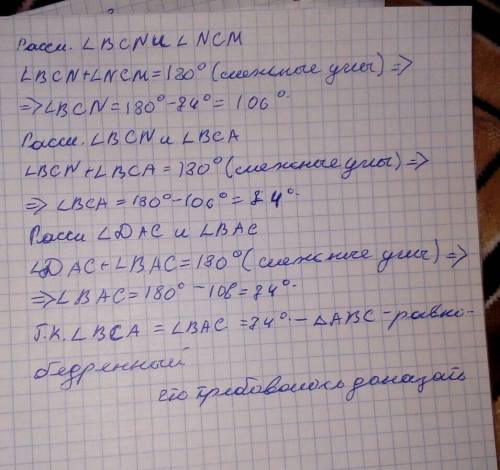 Рассм. ∠BCN и ∠NCM
∠BCN+∠NCM=180° (смежные углы) =>
=>∠BCN=180°-84°= 106°.
Рассм. ∠BCN и ∠BCA
∠BCN+∠BCA=180° (смежные углы) =>
=> ∠BCA=180°-106°=84°.
Рассм ∠DAC и ∠BAC
∠DAC+∠BAC=180° (смежные углы) =>
=>∠BAC=180°-106=84°.
Т.к. ∠BCA = ∠BAC =84° - △ABC - равно-
бедренный
что требовалось доказать